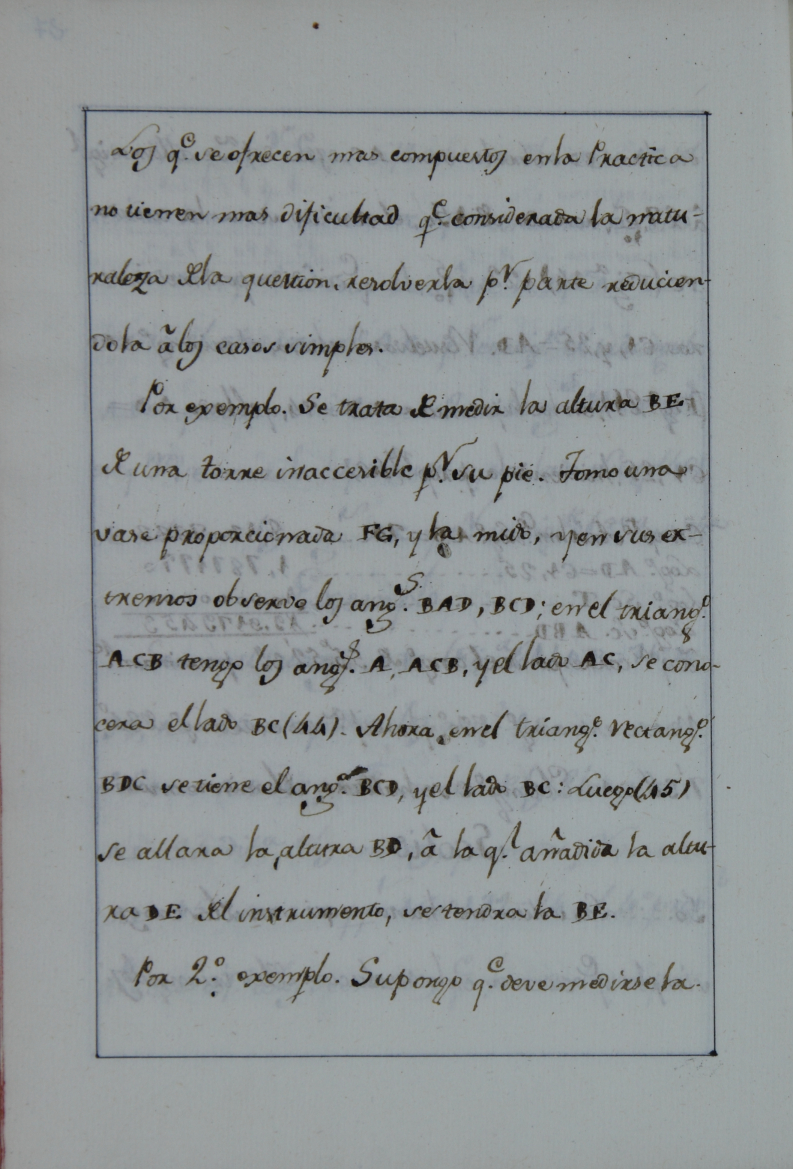 Los q.e se ofrecen mas compuestos en la Practica
no tienen mas dificultad q.e considerada la natu-
raleza de la question, resolverla p.r parte reducien-
dola â los casos simples.
Por exemplo. Se trata de medir la altura BE
de una torre inaccesible p.r su pie. Tomo una
vase proporcionada FG, y la mido, y en sus ex-
tremos observo los ang.s BAD, BCD; en el triang.e
ACB tengo los ang.s A, ACB, y el lado AC, se cono-
cera el lado BC (44). Ahora, en el triang.e Rectang.e
BDC se tiene el ang.o BCD, y el lado BC: Luego (45)
se allara la altura BD, â la q.l añadida la altu-
ra DE del instrumento, se tendra la BE.
Por 2.o exemplo. Supongo q.e deve medirse la